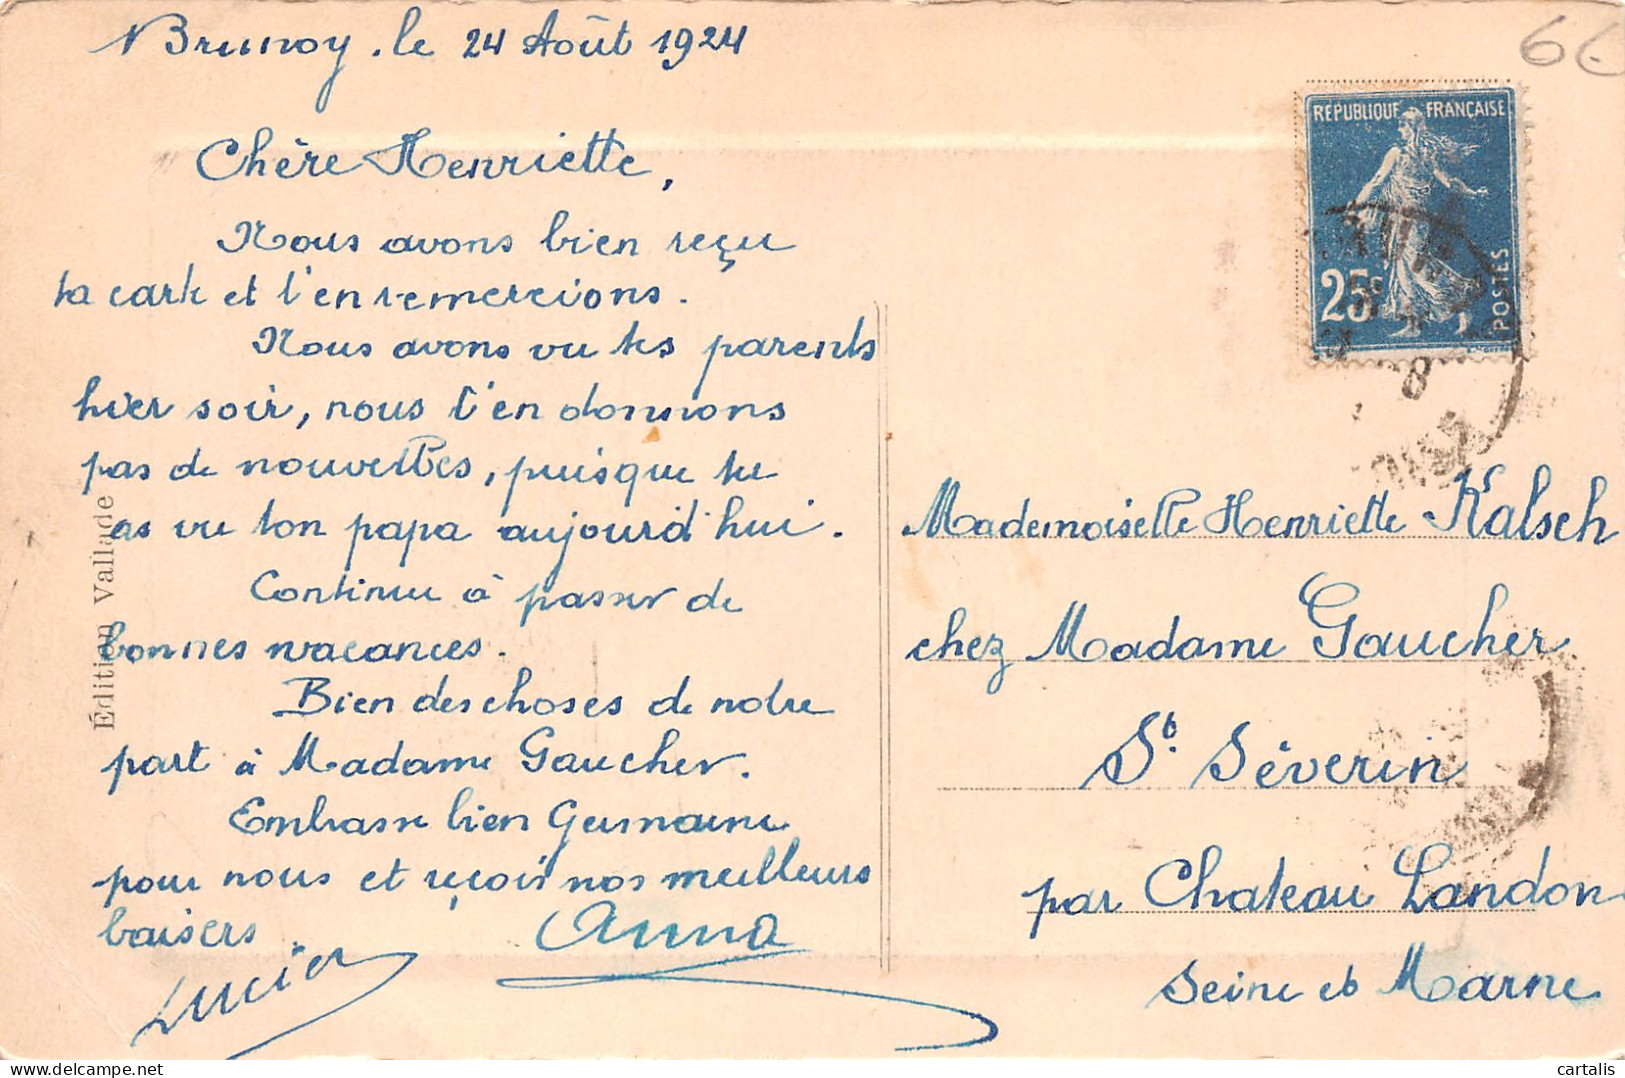 Brunoy. le 24 Août 1924
66
Chère Henriette,
Nous avons bien reçu
ta carte et t'en remercions.
Nous avons vu tes parents
hier soir, nous t'en donnons
pas de nouvelles, puisque tu
as vu ton papa aujourd'hui.
Continue à passer de
bonnes vacances.
Bien des choses de notre
part à Madame Gaucher.
Embrasse bien Germaine
pour nous et reçois nos meilleurs
baisers
Lucien
Anna
Édition Vallude
RÉPUBLIQUE FRANÇAISE
25c
POSTES
8
Mademoiselle Henriette Kalsch
chez Madame Gaucher
St. Séverin
par Chateau Landon
Seine et Marne
cartalis
www.delcampe.net